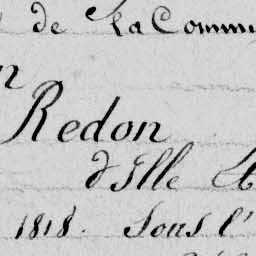 de La Commu
n
Redon
d'Ille Et
1818. Sous l'